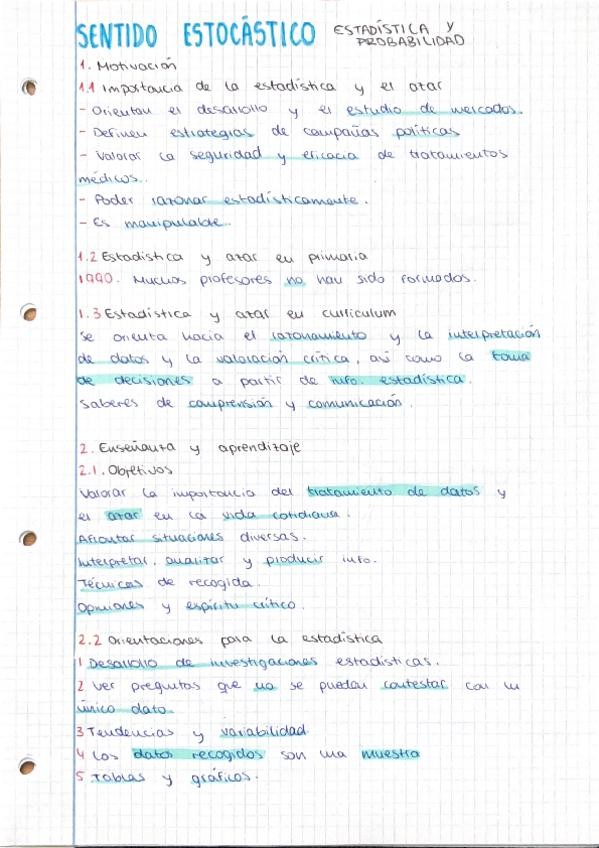 SENTIDO ESTOCÁSTICO ESTADÍSTICA Y PROBABILIDAD
1. Motivación
1.1 Importancia de la estadística y el azar
- Orientan el desarrollo y el estudio de mercados.
- Definen estrategias de campañas políticas
- Valorar la seguridad y eficacia de tratamientos
médicos.
- Poder razonar estadísticamente.
- Es manipulable.
1.2 Estadística y azar en primaria
1990. Muchos profesores no han sido formados.
1.3 Estadística y azar en curriculum
Se orienta hacia el razonamiento y la interpretación
de datos y la valoración crítica, así como la toma
de decisiones a partir de info. estadística.
Saberes de comprensión y comunicación.
2. Enseñanza y aprendizaje
2.1. Objetivos
Valorar la importancia del tratamiento de datos y
el azar en la vida cotidiana.
Afrontar situaciones diversas.
Interpretar, analizar y producir info.
Técnicas de recogida.
Opiniones y espíritu crítico.
2.2 Orientaciones para la estadística
1 Desarrollo de investigaciones estadísticas.
2 Ver preguntas que no se puedan contestar con un
único dato.
3 Tendencias y variabilidad.
4 Los datos recogidos son una muestra
5 Tablas y gráficos.